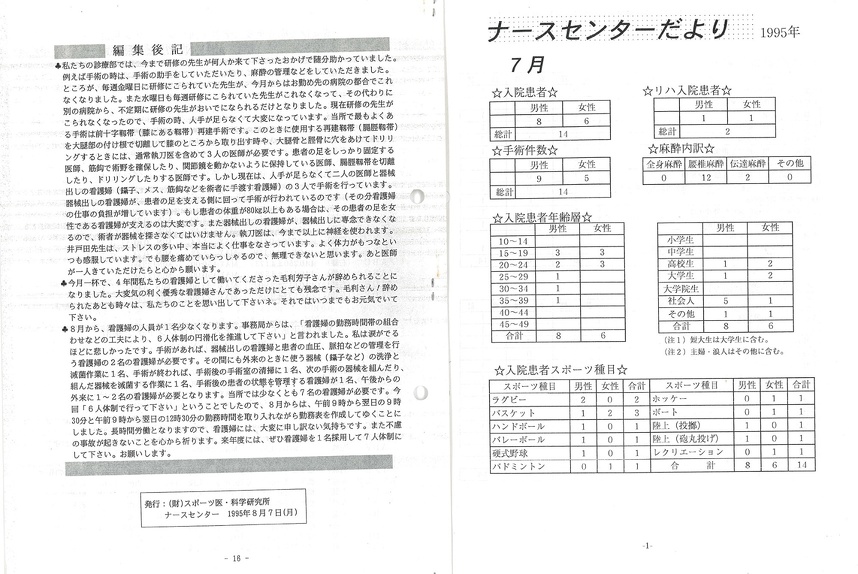 編集後記
♣私たちの診療部では、今まで研修の先生が何人か来て下さったおかげで随分助かっていました。
例えば手術の時は、手術の助手をしていただいたり、麻酔の管理などをしていただきました。
ところが、毎週金曜日に研修にこられていた先生が、今月からはお勤め先の病院の都合でこれ
なくなりました。また水曜日も毎週研修にこられていた先生がこれなくなって、その代わりに
別の病院から、不定期に研修の先生がおいでになられるだけとなりました。現在研修の先生が
こられなくなったので、手術の時、人手が足らなくて大変になっています。当所で最もよくあ
る手術は前十字靱帯（膝にある靱帯）再建手術です。このときに使用する再建靱帯（腸脛靱帯）
を大腿部の付け根で切離して膝のところから取り出す時や、大腿骨と脛骨に穴をあけてドリリ
ングするときには、通常執刀医を含めて３人の医師が必要です。患者の足をしっかり固定する
医師、筋鈎で術野を確保したり、関節鏡を動かないように保持している医師、腸脛靱帯を切離
したり、ドリリングしたりする医師です。しかし現在は、人手が足らなくて二人の医師と器械
出しの看護婦（鑷子、メス、筋鈎などを術者に手渡す看護婦）の３人で手術を行っています。
器械出しの看護婦が、患者の足を支える側に回って手術が行われているのです（その分看護婦
の仕事の負担が増しています）。もし患者の体重が80kg以上もある場合は、その患者の足を女
性である看護婦が支えるのは大変です。また器械出しの看護婦が、器械出しに専念できなくな
るので、術者が器械を探さなくてはいけません。執刀医は、今まで以上に神経を使われます。
井戸田先生は、ストレスの多い中、本当によく仕事をなさっています。よく体力がもつなとい
つも感服しています。でも腰を痛めていらっしゃるので、無理できないと思います。あと医師
が一人きていただけたらと心から願います。
♣今月一杯で、４年間私たちの看護婦として働いてくださった毛利芳子さんが辞められることに
なりました。大変気の利く優秀な看護婦さんであっただけにとても残念です。毛利さん！辞め
られたあとも時々は、私たちのことを思い出して下さいネ。それではいつまでもお元気でいて
下さい。
♣８月から、看護婦の人員が１名少なくなります。事務局からは、「看護婦の勤務時間帯の組合
わせなどの工夫により、６人体制の円滑化を推進して下さい」と言われました。私は涙がでる
ほどに悲しかったです。手術があれば、器械出しの看護婦と患者の血圧、脈拍などの管理を行
う看護婦の２名の看護婦が必要です。その間にも外来のときに使う器械（鑷子など）の洗浄と
滅菌作業に１名、手術が終われば、手術後の手術室の清掃に１名、次の手術の器械を組んだり、
組んだ器械を滅菌する作業に１名、手術後の患者の状態を管理する看護婦が１名、午後からの
外来に１〜２名の看護婦が必要となります。当所では少なくとも７名の看護婦が必要です。今
回「６人体制で行って下さい」ということでしたので、８月からは、午前９時から翌日の９時
30分と午前９時から翌日の12時30分の勤務時間を取り入れながら勤務表を作成してゆくことに
しました。長時間労働となりますので、看護婦には、大変に申し訳ない気持ちです。また不慮
の事故が起きないことを心から祈ります。来年度には、ぜひ看護婦を１名採用して７人体制に
して下さい。お願いします。
発行：(財)スポーツ医・科学研究所
ナースセンター 1995年８月７日(月)
- 16 -
ナースセンターだより 1995年
７月
☆入院患者☆
男性 女性
8 6
総計 14
☆リハ入院患者☆
男性 女性
1 1
総計 2
☆手術件数☆
男性 女性
9 5
総計 14
☆麻酔内訳☆
全身麻酔 腰椎麻酔 伝達麻酔 その他
0 12 2 0
☆入院患者年齢層☆
男性 女性
10〜14
15〜19 3 3
20〜24 2 3
25〜29 1
30〜34 1
35〜39 1
40〜44
45〜49
合計 8 6
男性 女性
小学生
中学生
高校生 1 2
大学生 1 2
大学院生
社会人 5 1
その他 1 1
合計 8 6
（注１）短大生は大学生に含む。
（注２）主婦・浪人はその他に含む。
☆入院患者スポーツ種目☆
スポーツ種目 男性 女性 合計 スポーツ種目 男性 女性 合計
ラグビー 2 0 2 ホッケー 0 1 1
バスケット 1 2 3 ボート 0 1 1
ハンドボール 1 0 1 陸上（投擲） 1 0 1
バレーボール 1 0 1 陸上（砲丸投げ） 1 0 1
硬式野球 1 0 1 レクリエーション 0 1 1
バドミントン 0 1 1 合計 8 6 14
-1-